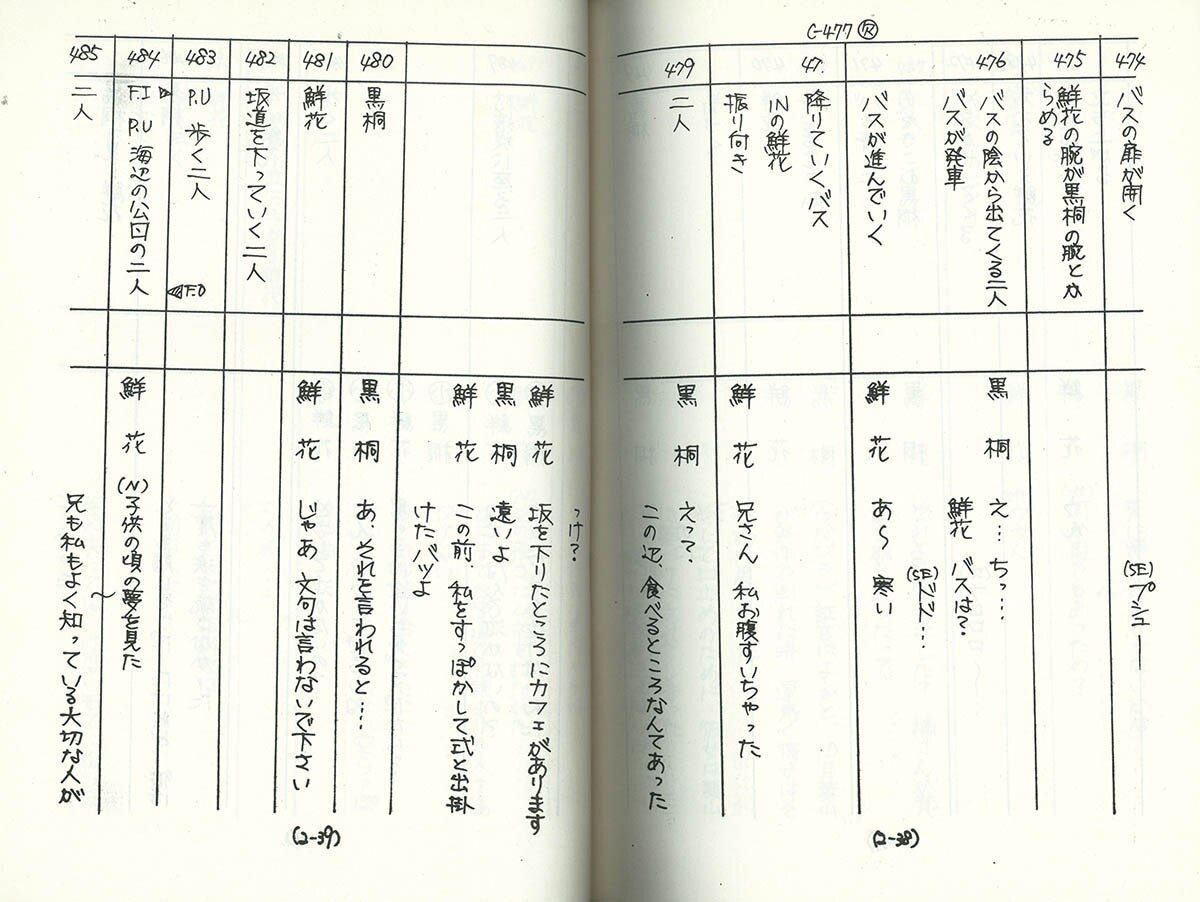 C-477 欠
474
バスの扉が開く
(SE)プシュー
475
鮮花の腕が黒桐の腕とか
らめる
476
バスの陰から出てくる二人
バスが発車
黒桐 え…ちっ…
鮮花 バスは?
(SE)ドド…
バスが進んでいく
鮮花 あ〜 寒い
47.
降りていくバス
INの鮮花
振り付き
鮮花 兄さん 私お腹すいちゃった
479
二人
黒桐 えっ?
この辺、食べるところなんてあった
(2-38)
っけ?
鮮花 坂を下りたところにカフェがあります
黒桐 遠いよ
鮮花 この前、私をすっぽかして式と出掛
けたバツよ
480
黒桐
黒桐 あ、それを言われると…
481
鮮花
鮮花 じゃあ 文句は言わないで下さい
482
坂道を下っていく二人
483
P.U 歩く二人
F.O
484
F.I P.U 海辺の公園の二人
鮮花 (N)子供の頃の夢を見た〜
485
二人
兄も私もよく知っている大切な人が
(2-39)